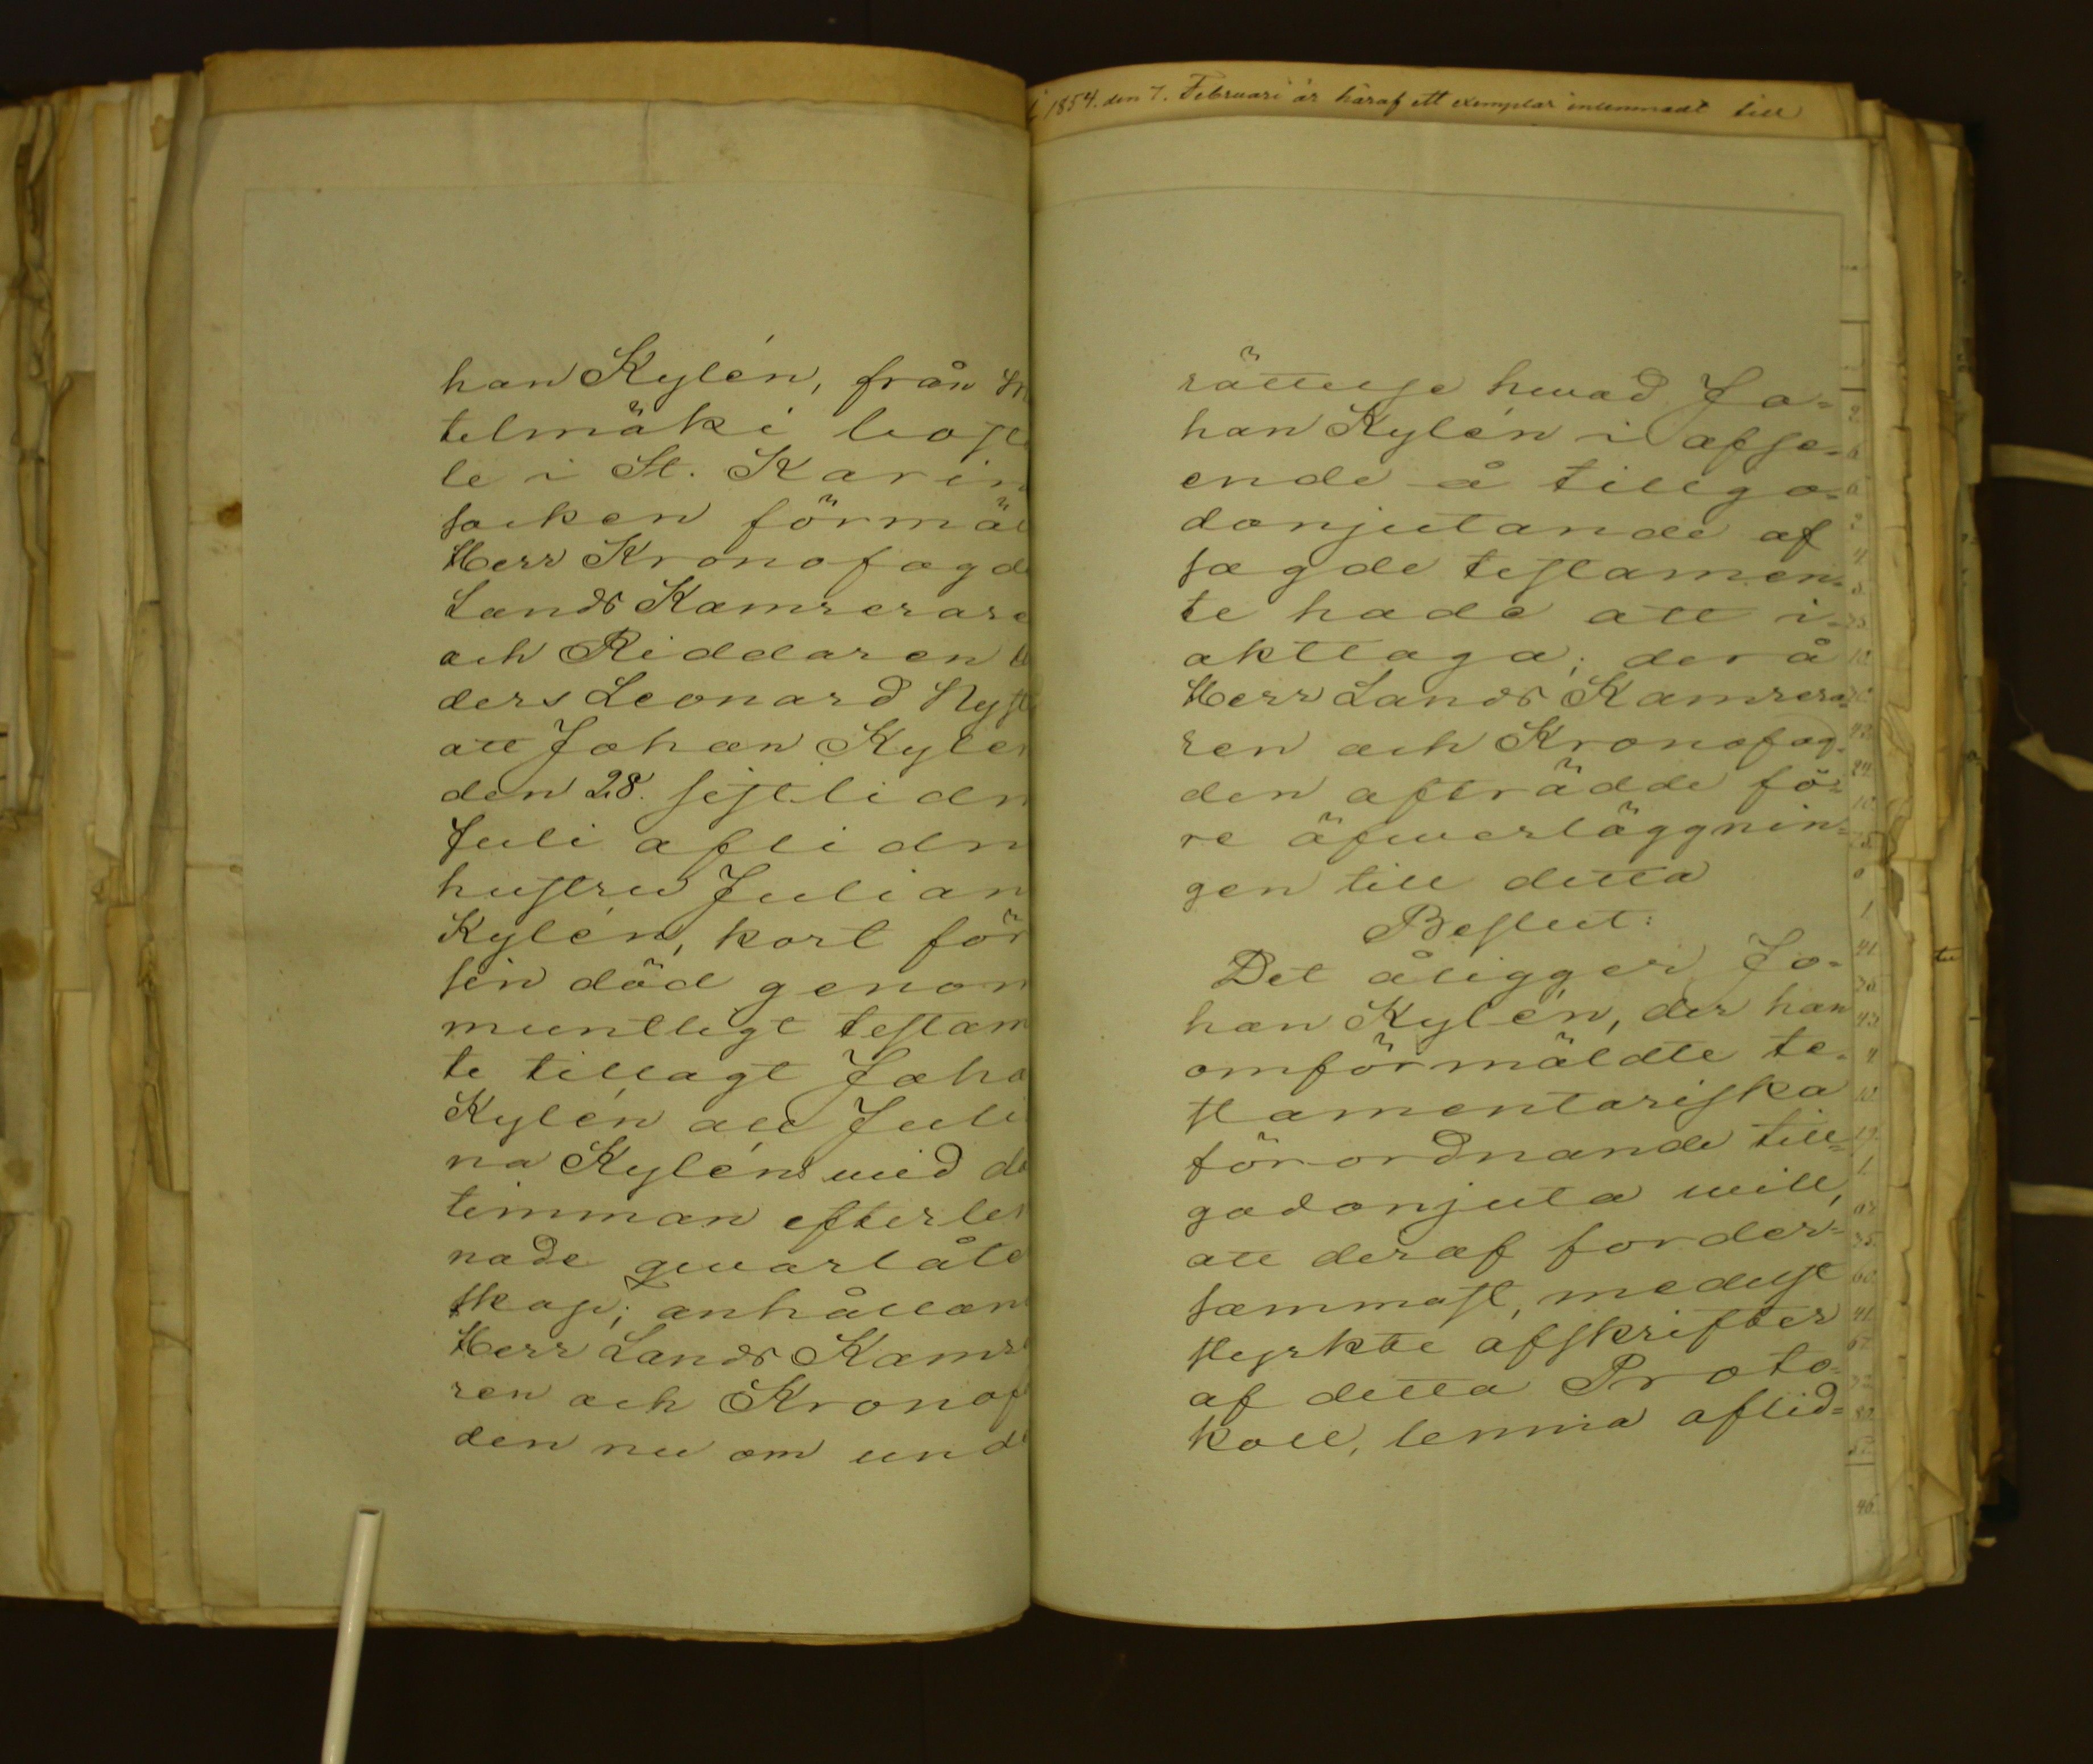 han Kylén, från
telmäki bost
le i St. Karin
socken förmäl
Herr Kronofogd
Lands Kamrerare
och Riddaren
ders Leonard Nyst
att Johan Kylen
den 28. sistlidn
Juli aflidn
hustru Julian
Kylén, kort för
sin död genom
muntligt testam
te tillagt Joha
Kylén all Juli
na Kyléns wid d
timman efterlem
nade qwarlåte
skap; anhållan
Herr Lands Kamr
ren och Kronof
den nu om und
1854. den 7. Februari är häraf ett exemplar inlemnadt till
rättelse hwad Jo-
han Kylén i afse-
ende å tillgo-
donjutande af
sagde testamen-
te hade att i-
akttaga; derå
Herr Lands Kamrera-
ren och Kronofog-
den afträdde fö-
re öfwerläggnin-
gen till detta
Beslut:
Det åligger Jo-
han Kylén, der han
omförmäldte te-
stamentariska
förordnande till-
godonjuta will,
att deraf forder-
sammast, medelst
styrkte afskrifter
af detta Proto-
koll, lemna aflid-